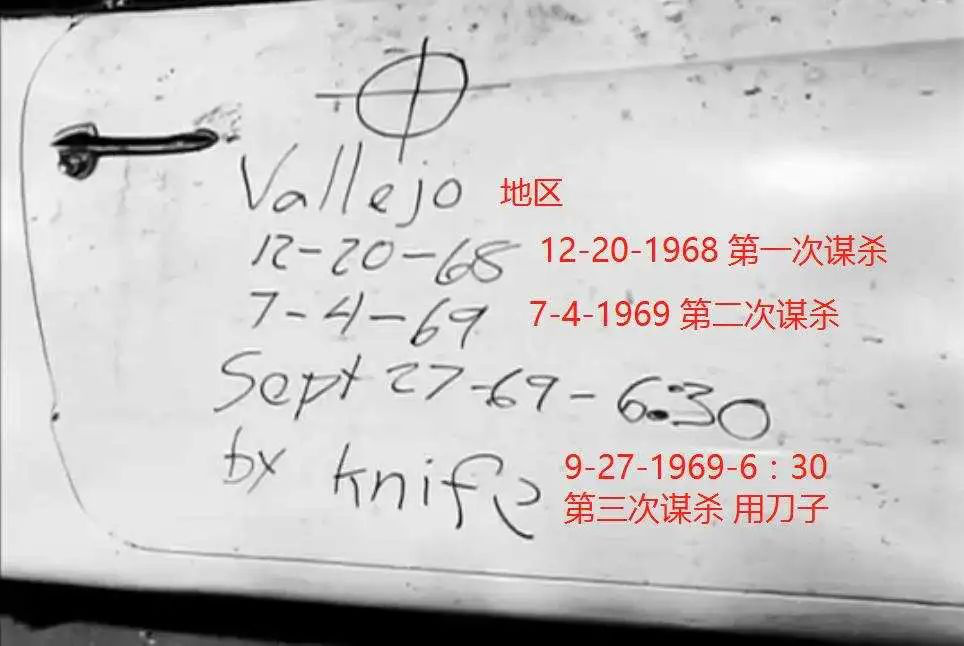 Vallejo 地区
12-20-68 12-20-1968 第一次谋杀
7-4-69 7-4-1969 第二次谋杀
Sept 27-69-6:30
by knife 9-27-1969-6：30
第三次谋杀 用刀子